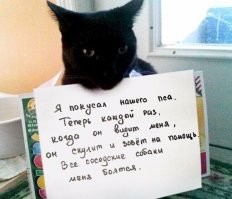 Я покусал нашего пса.
Теперь каждый раз,
когда он видит меня,
он скулит и зовёт на помощь.
Все соседские собаки
меня боятся.